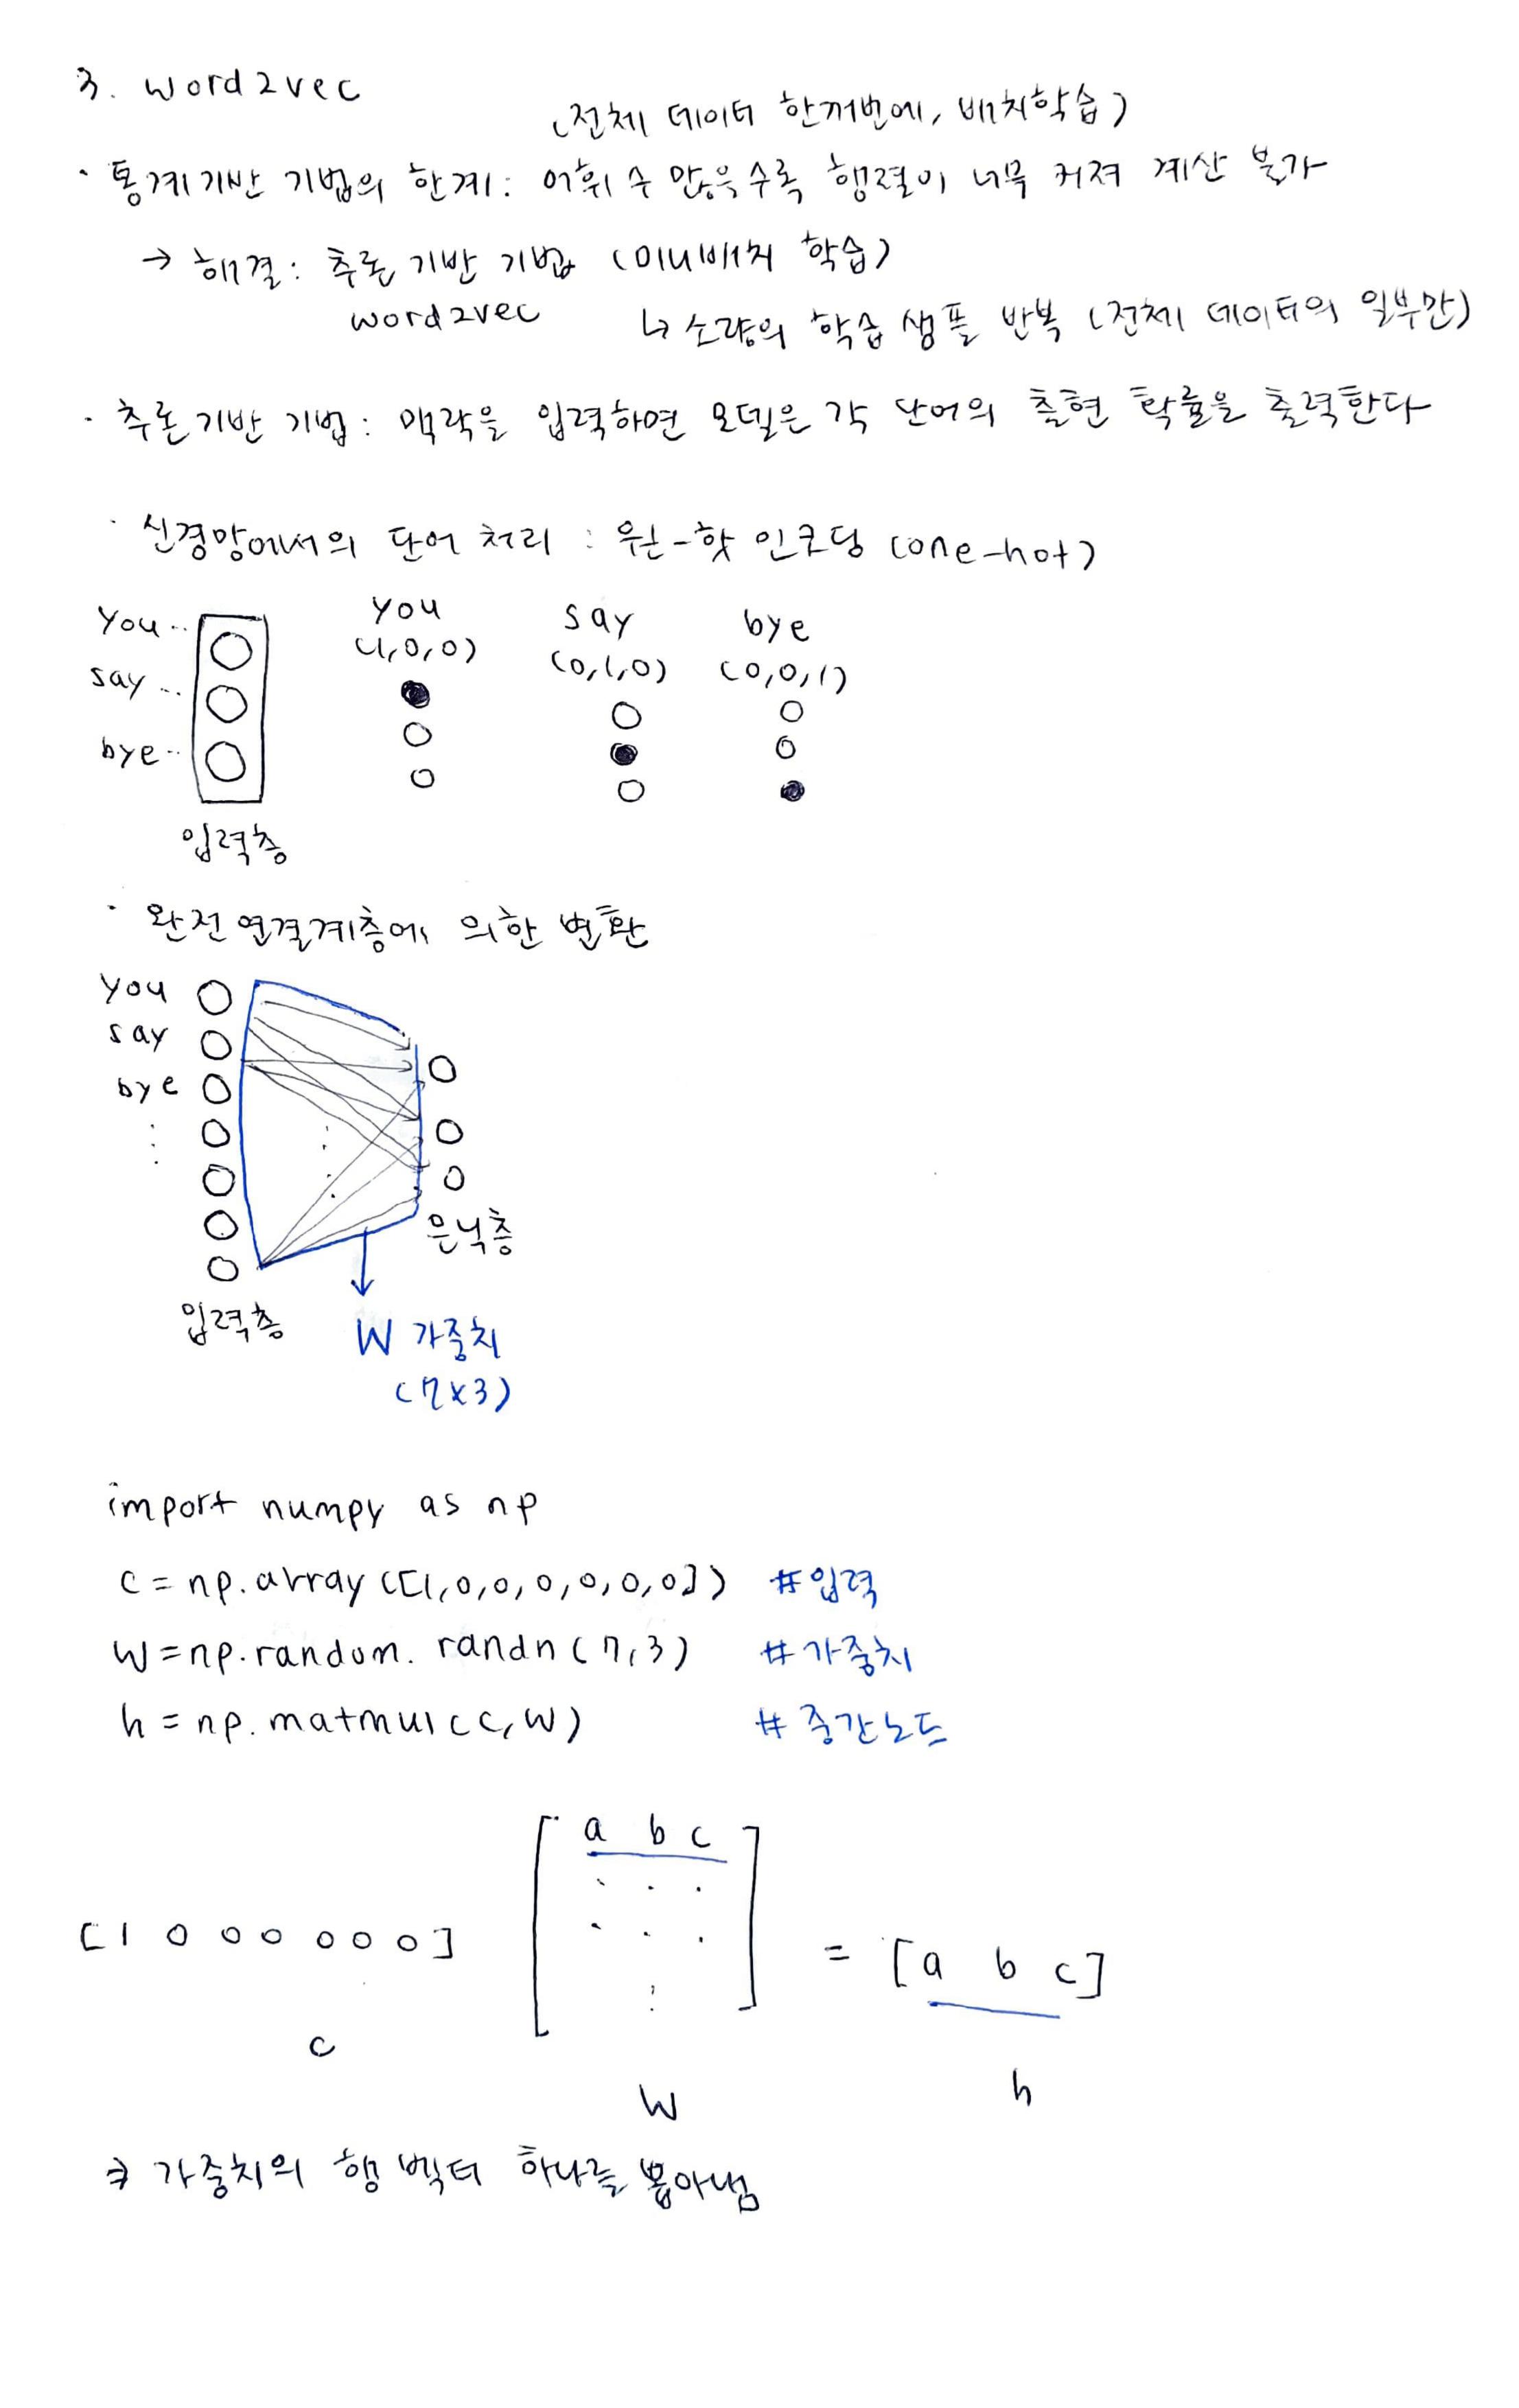 3. word2vec
(전체 데이터 한꺼번에, 배치학습)
· 통계기반 기법의 한계: 어휘 수 많을수록 행렬이 너무 커져 계산 불가
→ 해결: 추론 기반 기법 (미니배치 학습)
word2vec ↳ 소량의 학습 샘플 반복 (전체 데이터의 일부만)
· 추론 기반 기법: 맥락을 입력하면 모델은 각 단어의 출현 확률을 출력한다
· 신경망에서의 단어 처리 : 원-핫 인코딩 (one-hot)
you say bye
(1,0,0) (0,1,0) (0,0,1)
you ..
say ...
bye ..
입력층
· 완전연결계층에 의한 변환
you
say
bye
⋮
은닉층
입력층
W 가중치
(7×3)
import numpy as np
c = np.array([[1,0,0,0,0,0,0]) #입력
W = np.random.randn(7,3) #가중치
h = np.matmul(c,W) #중간노드
a b c
[1 0 0 0 0 0 0] = [a b c]
c
W
h
⇒ 가중치의 행 벡터 하나를 뽑아냄